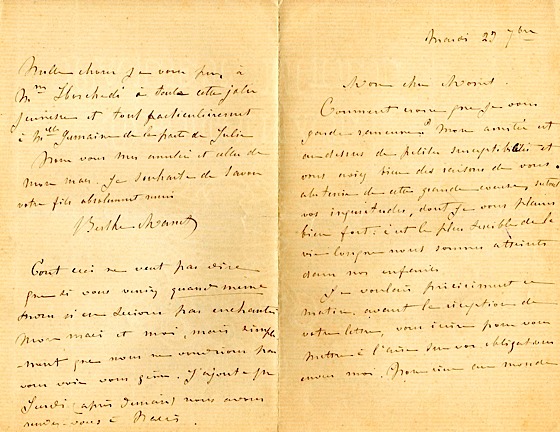 Mardi 27 7bre
Mon cher Monet.
Comment croire que je vous
garde rancune? Mon amitié est
au dessus de petites susceptibilités et
vous aviez bien des raisons de vous
abstenir de cette grande course, surtout
vos inquiétudes, dont je vous plains
bien fort: c'est le plus sensible de la
vie lorsque nous sommes atteints
dans nos enfants.
Je voulais précisément ce
matin, avant la réception de
votre lettre, vous écrire pour vous
mettre à l'aise sur vos obligations
envers moi. Pour rien au monde
Mille choses je vous prie à
Mme Hoschedé à toute cette jolie
jeunesse et tout particulièrement
à Mlle Germaine de la part de Julie
Pour vous mes amitiés et celles de
mon mari. Je souhaite de savoir
votre fils absolument remis
Berthe Morisot
Tout ceci ne veut pas dire
que si vous veniez quand même
nous n'en serions pas enchantés
mon mari et moi, mais simple-
ment que nous ne voudrions pas
vous voir vous gêner. J'ajoute que
Jeudi (après demain) nous avons
rendez-vous à Paris.